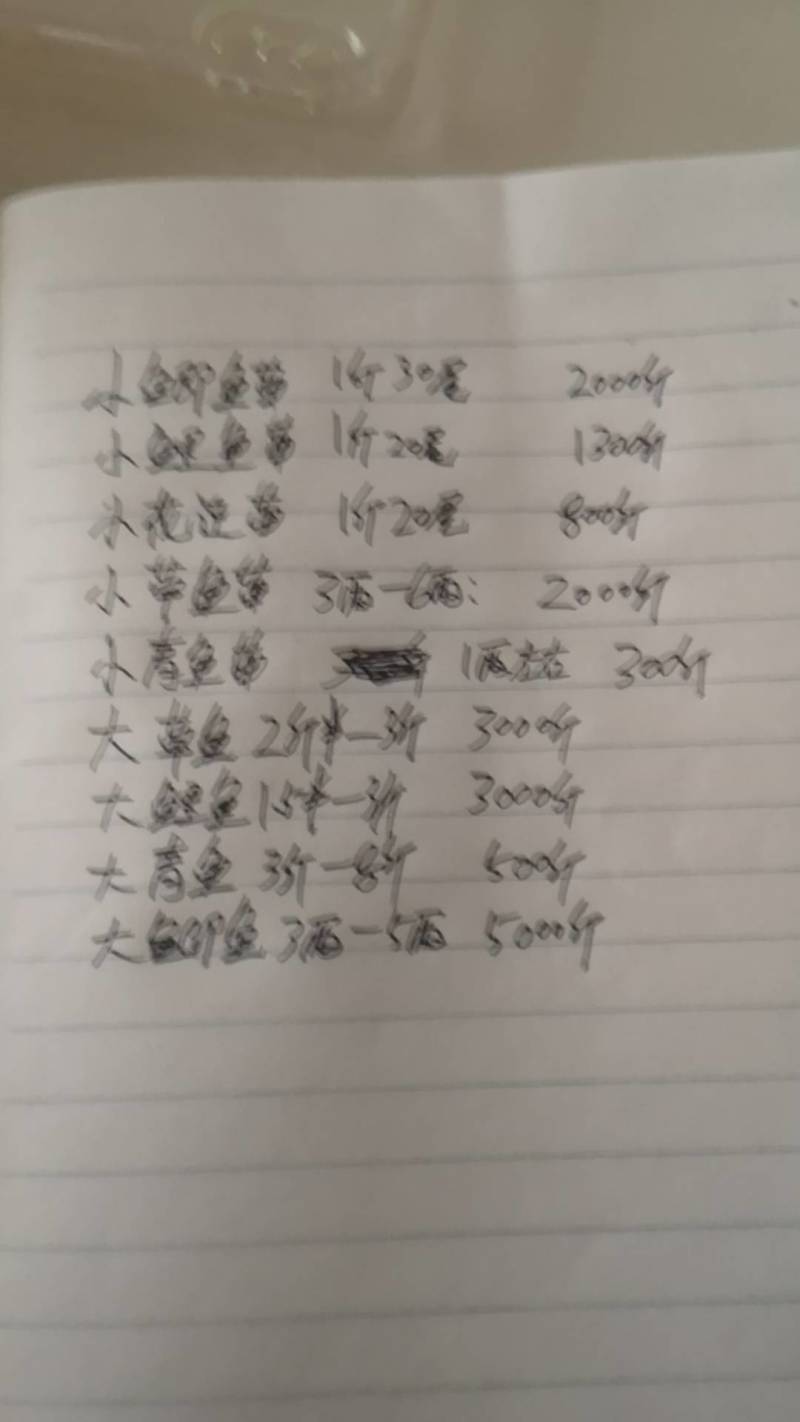 小鲫鱼苗 1斤30尾 2000斤
小鲤鱼苗 1斤20尾 1300斤
小花连苗 1斤20尾 800斤
小草鱼苗 3两-6两: 2000斤
小青鱼苗 1两左右 300斤
大草鱼 2斤半-3斤 3000斤
大鲤鱼 1斤半-3斤 3000斤
大青鱼 3斤-8斤 500斤
大鲫鱼 3两-5两 5000斤